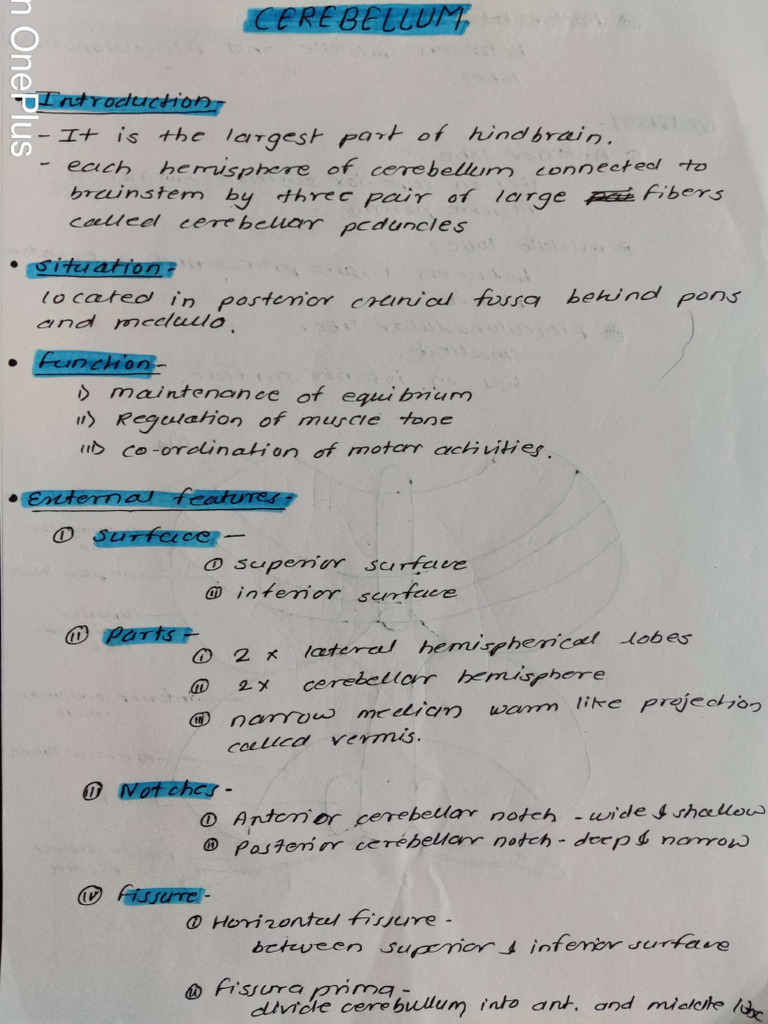 CEREBELLUM
n OnePlus
• Introduction-
- It is the largest part of hindbrain.
- each hemisphere of cerebellum connected to
brainstem by three pair of large fibers
called cerebellar peduncles
• situation-
located in posterior cranial fossa behind pons
and medullo.
• function-
i) maintenance of equibrium
ii) Regulation of muscle tone
iii) co-ordination of motor activities.
• External features-
(i) surface -
(i) superior surface
(ii) inferior surface
(ii) Parts-
(i) 2 x lateral hemispherical lobes
(ii) 2x cerebellar hemisphere
(iii) narrow median warm like projection
called vermis.
(ii) Notches-
(i) Anterior cerebellar notch - wide & shallow
(ii) Posterior cerebellar notch - deep & narrow
(iv) fissure-
(i) Horizontal fissure -
between superior & inferior surface
(ii) fissura prima-
divide cerebullum into ant. and middle lobe